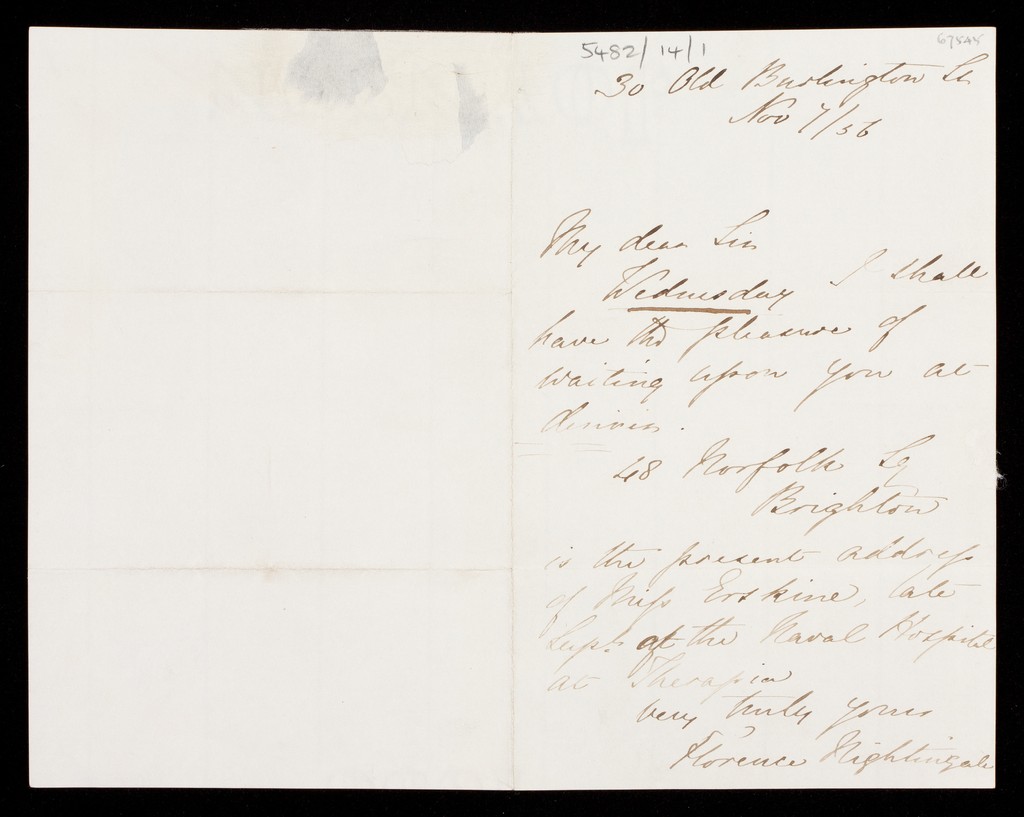 5482/14/1
67545
30 Old Burlington St
Nov 7/56
My dear Sir
Wednesday I shall
have the pleasure of
waiting upon you at
dinner.
48 Norfolk Sq
Brighton
is the present address
of Miss Erskine, late
Supt. of the Naval Hospital
at Therapia
very truly yours
Florence Nightingale